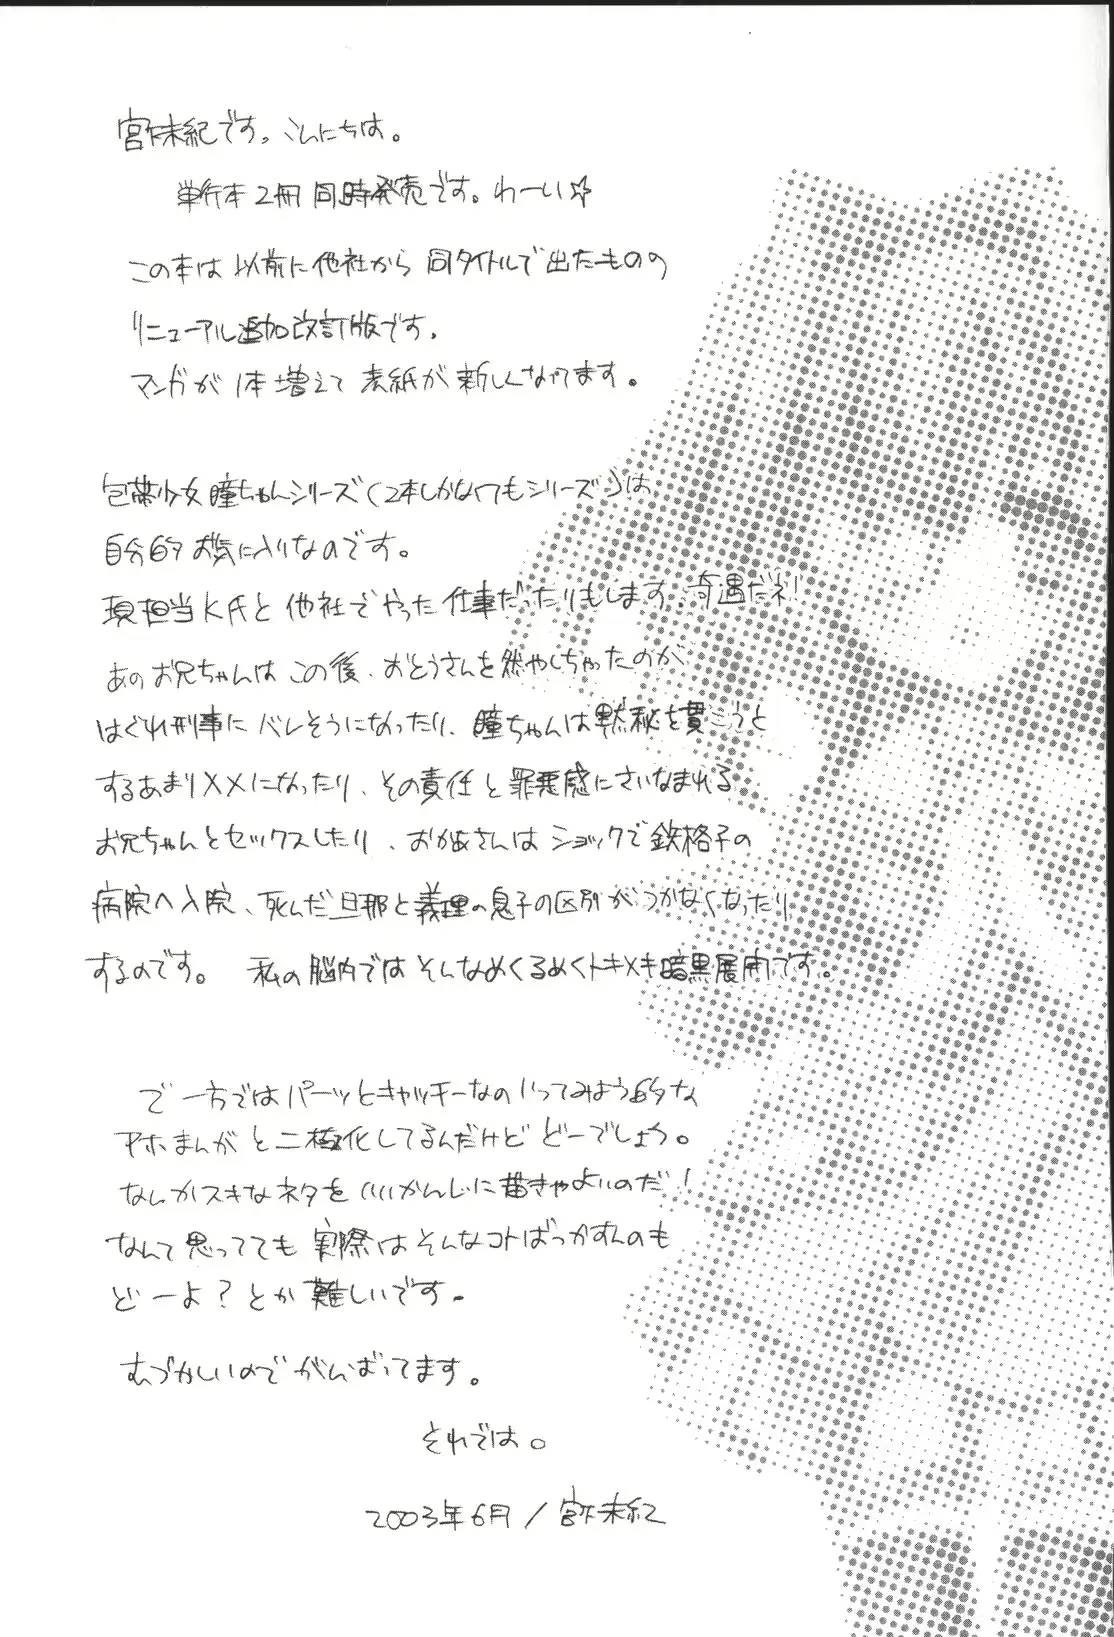 宮下未紀です。こんにちは。
単行本2冊同時発売です。わーい☆
この本は以前に他社から同タイトルで出たものの
リニューアル追加改訂版です。
マンガが1本増えて表紙が新しくなってます。
包帯少女瞳ちゃんシリーズ(2本しかなくてもシリーズ)は
自分的お気に入りなのです。
現担当K氏と他社でやった仕事だったりもします。奇遇だネ!
あのお兄ちゃんはこの後、おとうさんを燃やしちゃったのが
はぐれ刑事にバレそうになったり、瞳ちゃんは黙秘を貫こうと
するあまり××になったり、その責任と罪悪感にさいなまれる
お兄ちゃんとセックスしたり、おかあさんはショックで鉄格子の
病院へ入院、死んだ旦那と義理の息子の区別がつかなくなったり
するのです。私の脳内ではそんなめくるめくトキメキ暗黒展開です。
で一方ではパーッとキャッチーなのいってみよう的な
アホまんがと二極化してるんだけどどーでしょう。
なんかスキなネタをいいかんじに描きゃよいのだ!
なんて思ってても実際はそんなコトばっかすんのも
どーよ?とか難しいです。
むづかしいのでがんばってます。
それでは。
2003年6月/宮下未紀